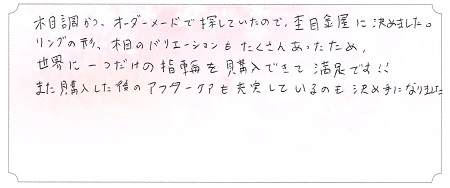 木目調かつ、オーダーメードで探していたので、杢目金屋に決めました。
リングの形、木目のバリエーションもたくさんあったため、
世界に一つだけの指輪を購入できて満足です!!
また購入した後のアフターケアも充実しているのも決め手になりました